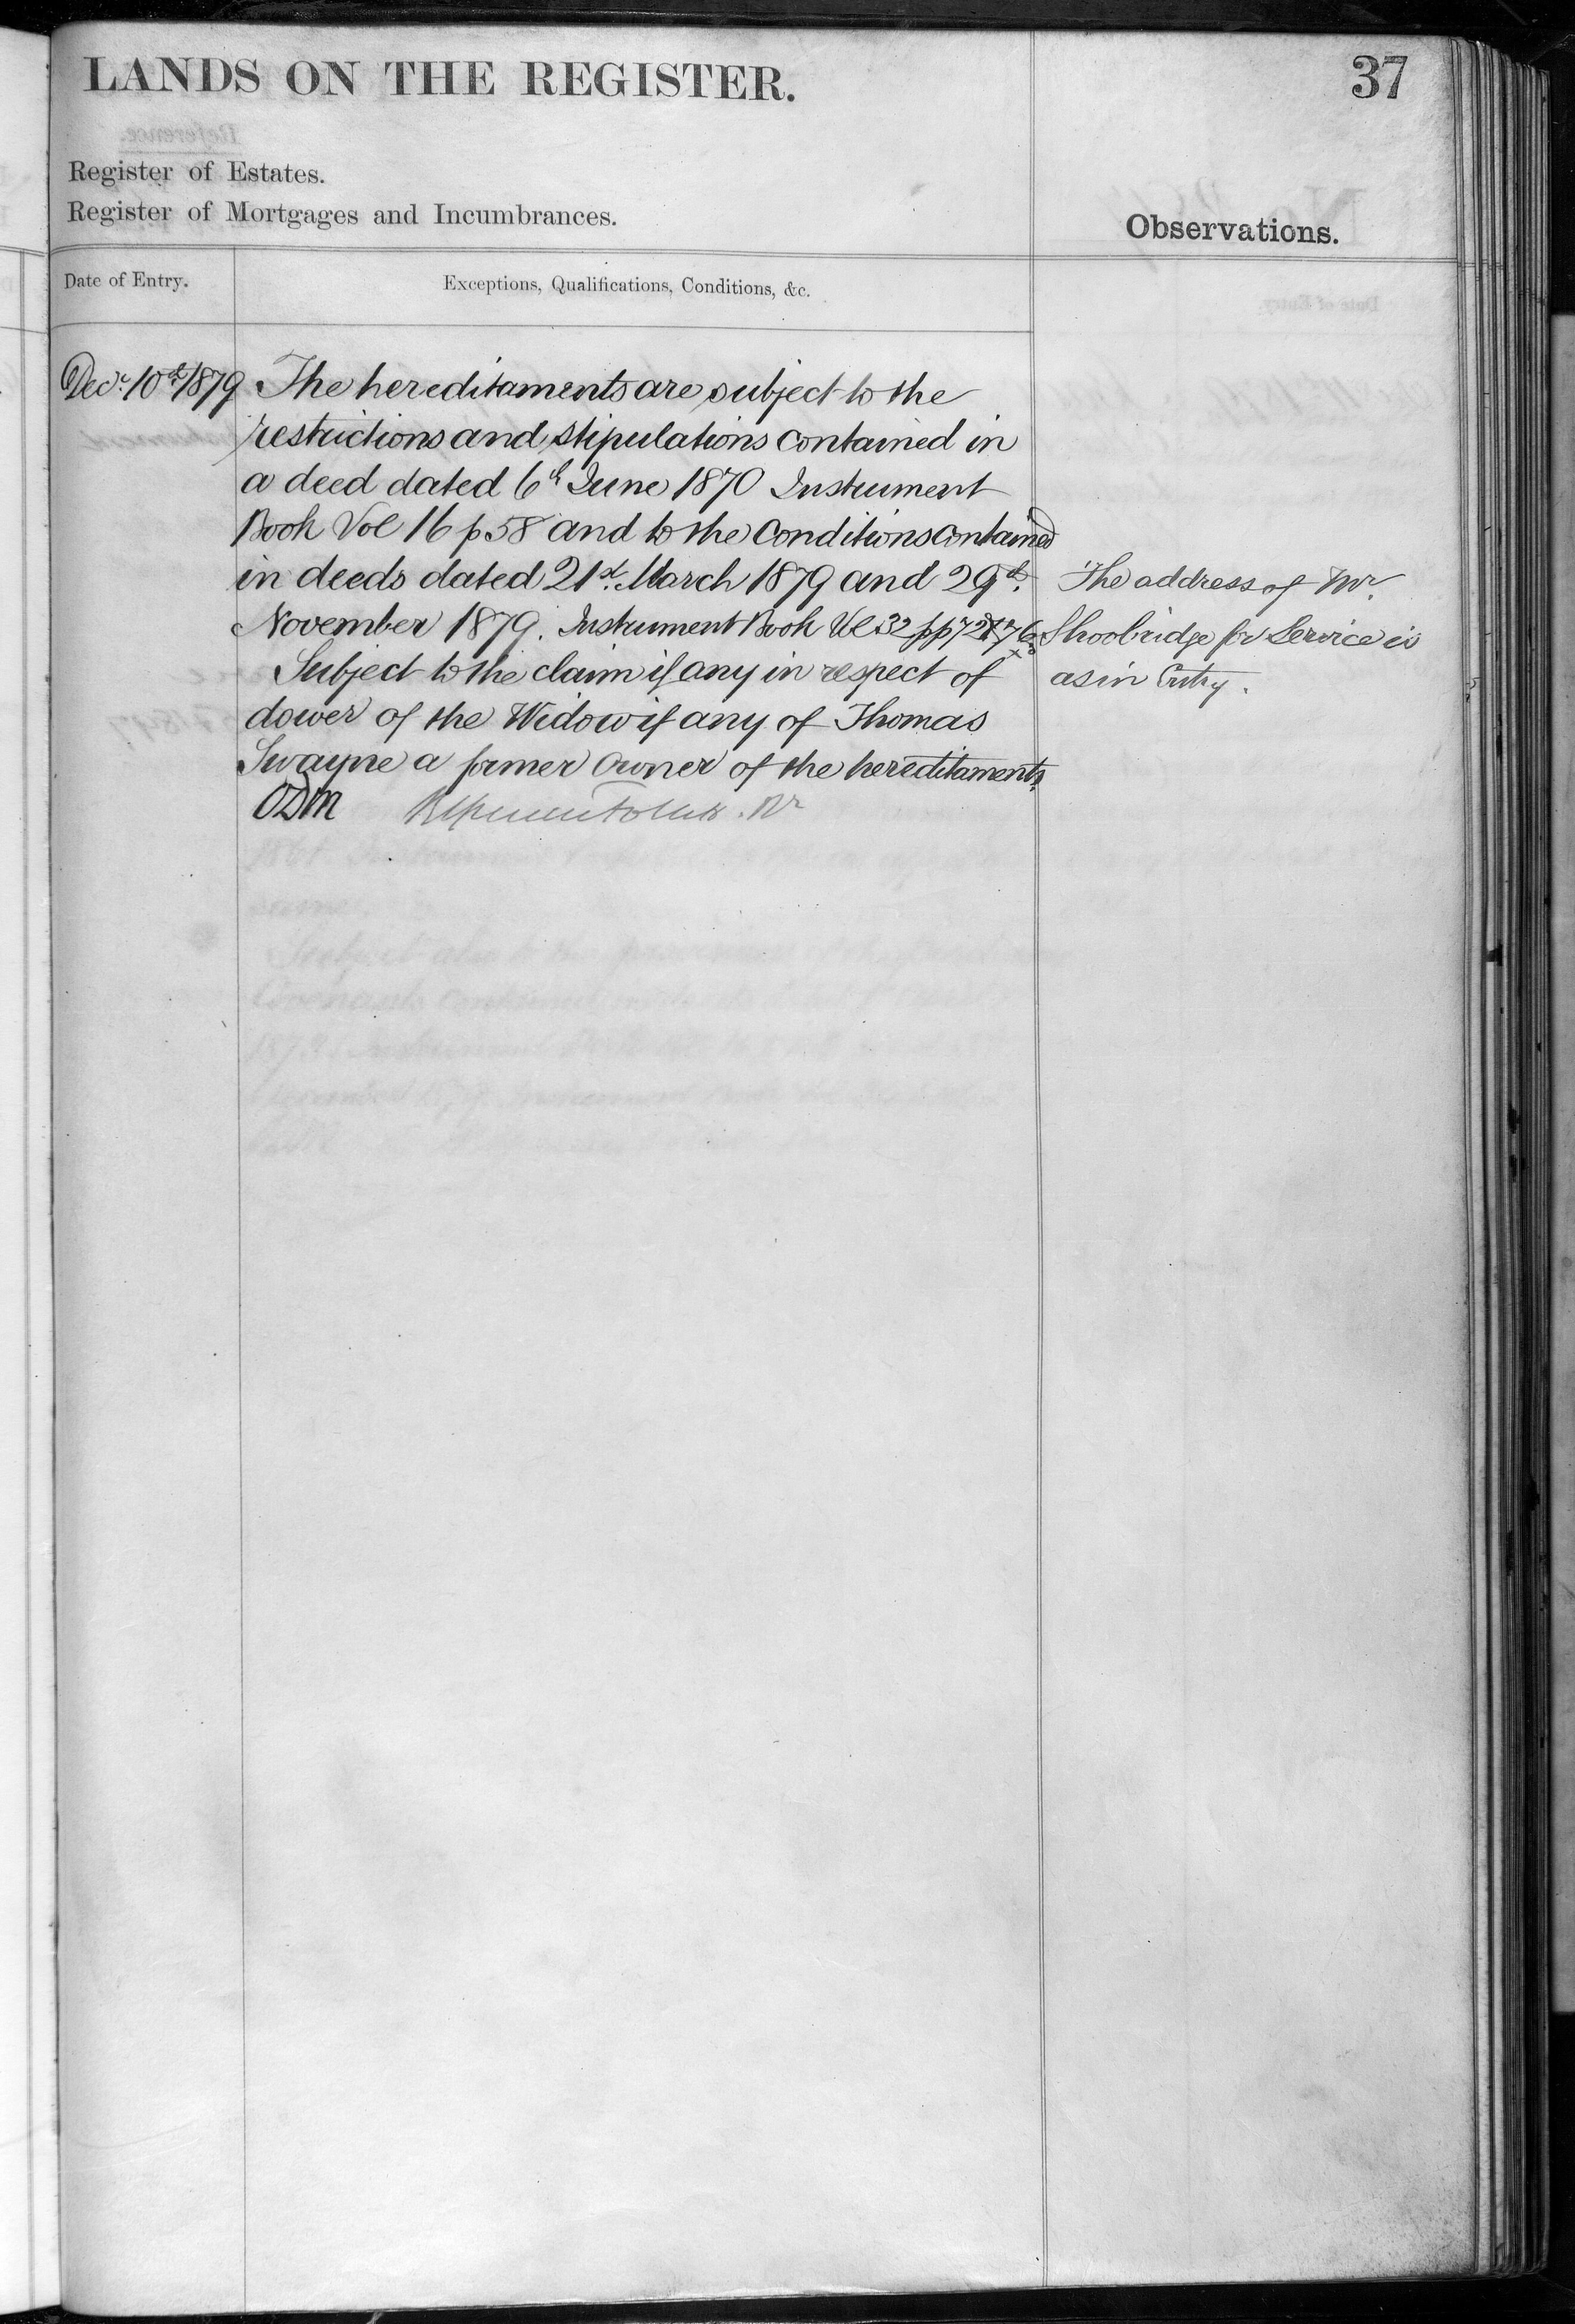 LANDS ON THE REGISTER.
37
Register of Estates.
Register of Mortgages and Incumbrances.
Observations.
Date of Entry.
Exceptions, Qualifications, Conditions, &c.
Decr. 10th 1879
The hereditaments are subject to the
restrictions and stipulations contained in
a deed dated 6th June 1870 Instrument
Book Vol 16 p 58 and to the Conditions contained
in deeds dated 21st. March 1879 and 29th.
November 1879. Instrument Book Vol 32 pp
Subject to the claim if any in respect of
dower of the Widow if any of Thomas
Swayne a former Owner of the hereditaments.
The address of Mr.
Shoobridge for Service is
as in Entry.